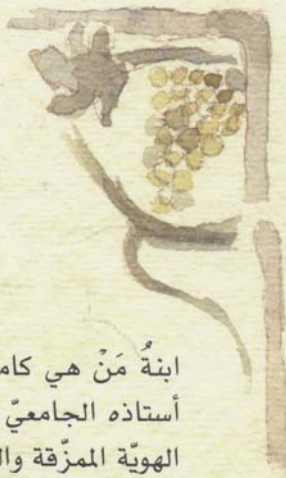 ابنةُ مَنْ هي كام
أستاذه الجامعيّ
الهويّة الممزّقة وال